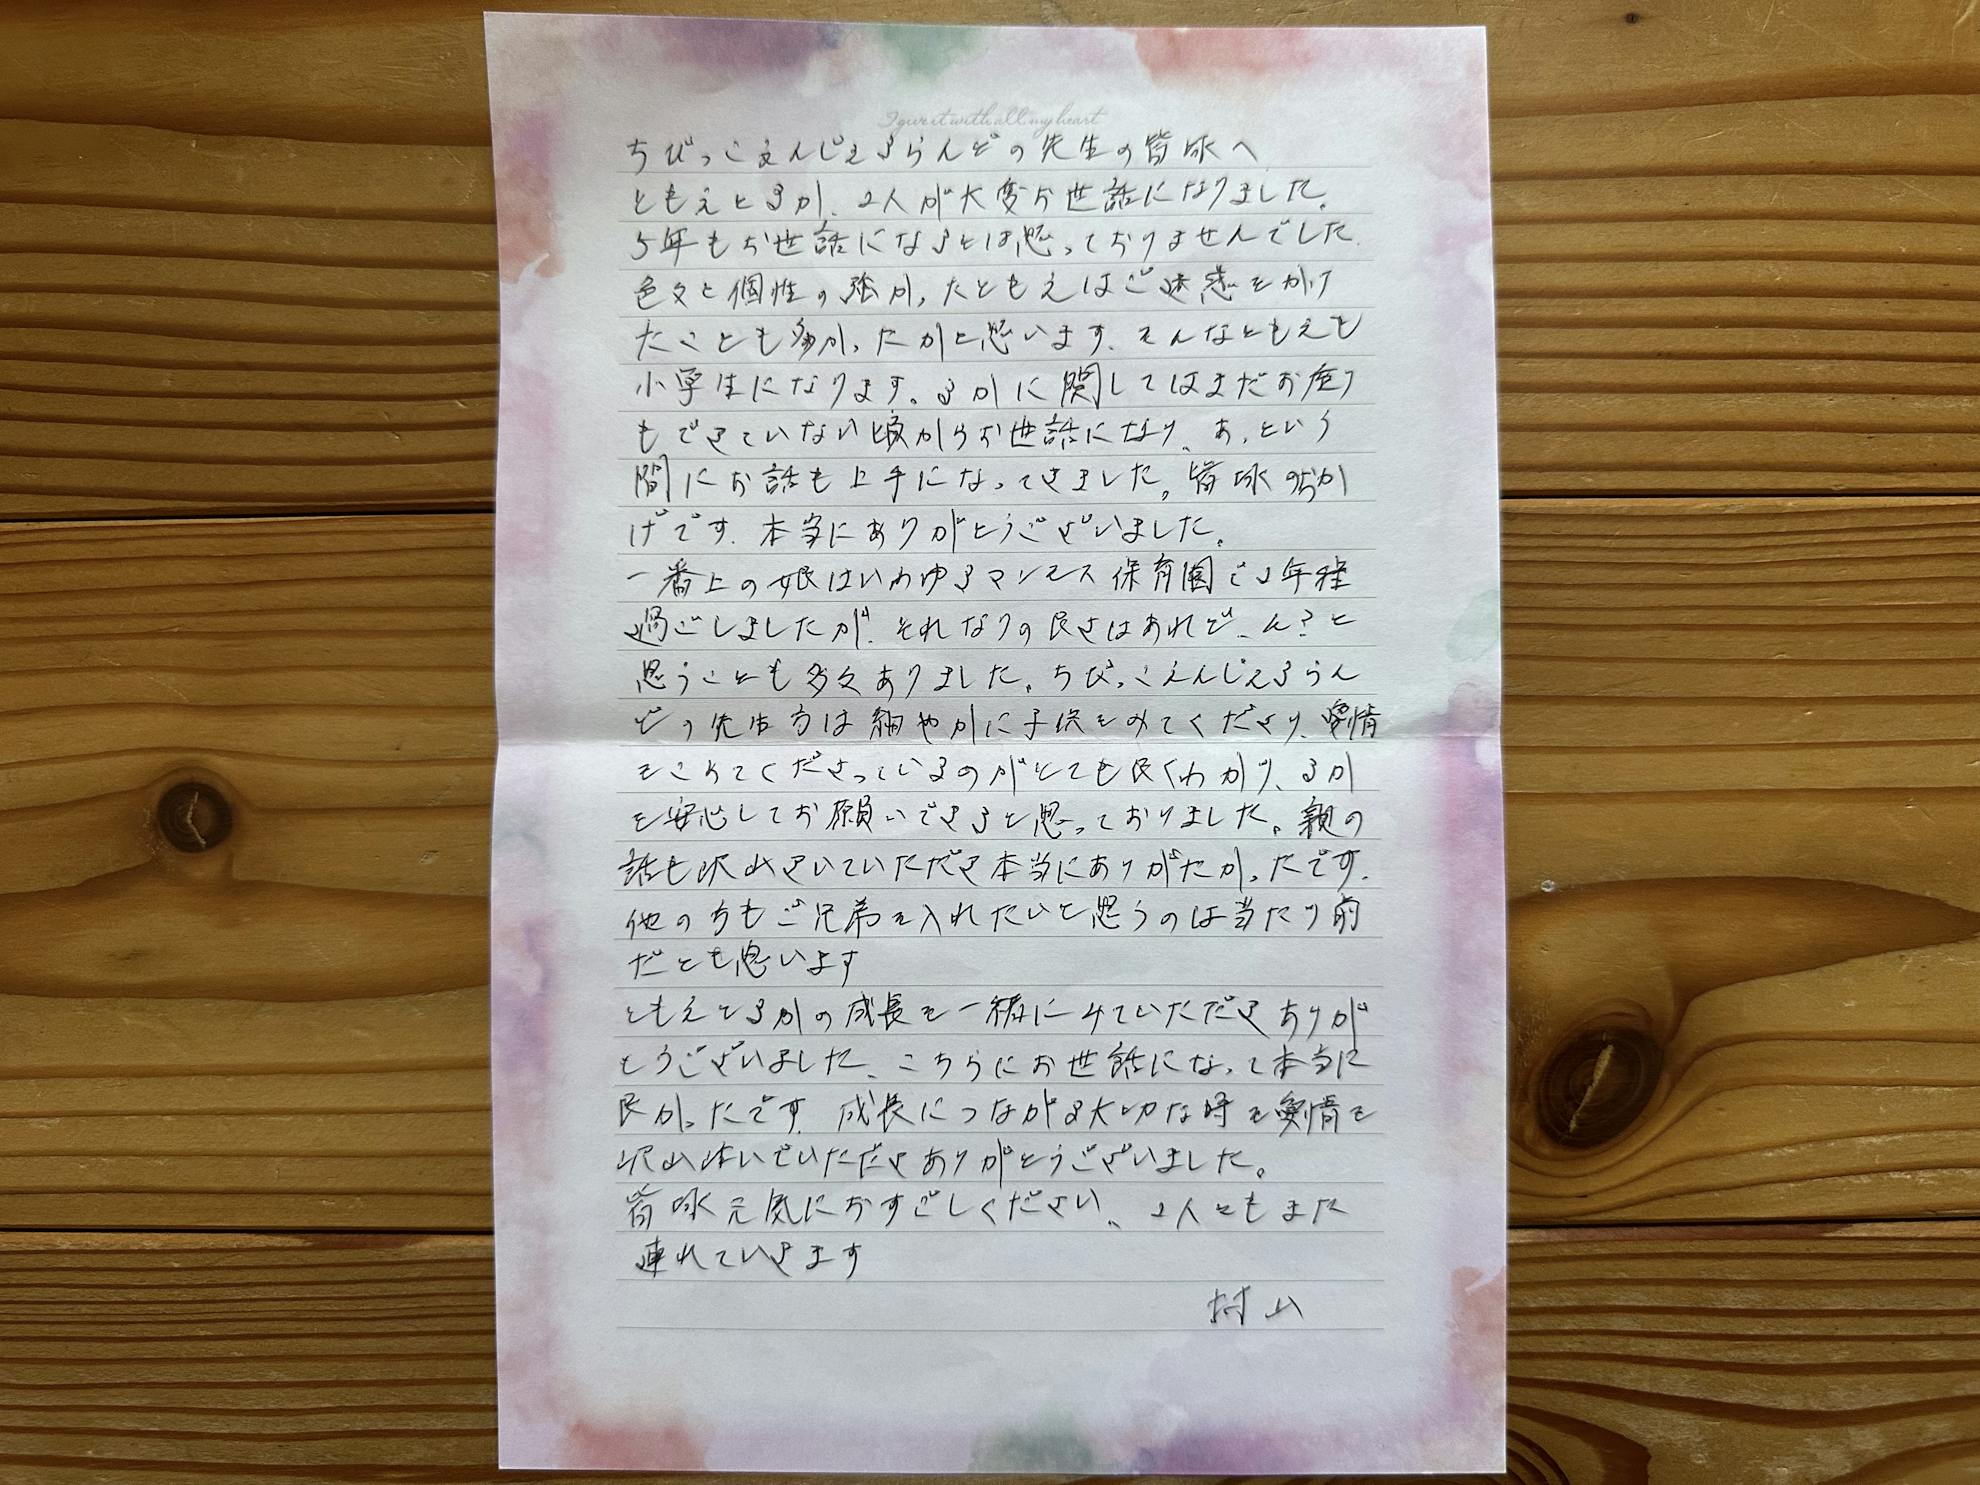 I give it with all my heart
ちびっこえんじぇるらんどの先生の皆様へ
ともえとるか、2人が大変お世話になりました。
5年もお世話になるとは思っておりませんでした。
色々と個性の強かったともえはご迷惑をかけ
たことも多かったかと思います。そんなともえも
小学生になります。るかに関してはまだお座り
もできていない頃からお世話になり、あっという
間にお話も上手になってきました。皆様のおか
げです。本当にありがとうございました。
一番上の娘はいわゆるマンモス保育園で2年程
過ごしましたが、それなりの良さはあれど、ん?と
思うことも多々ありました。ちびっこえんじぇるらん
どの先生方は細やかに子供をみてくださり、愛情
をこめてくださっているのがとても良くわかり、るか
を安心してお願いできると思っておりました。親の
話も沢山きいていただき本当にありがたかったです。
他の方もご兄弟を入れたいと思うのは当たり前
だとも思います
ともえとるかの成長を一緒にみていただきありが
とうございました。こちらにお世話になって本当に
良かったです。成長につながる大切な時を愛情を
沢山注いでいただきありがとうございました。
皆様元気におすごしください。2人ともまた
連れていきます
村山